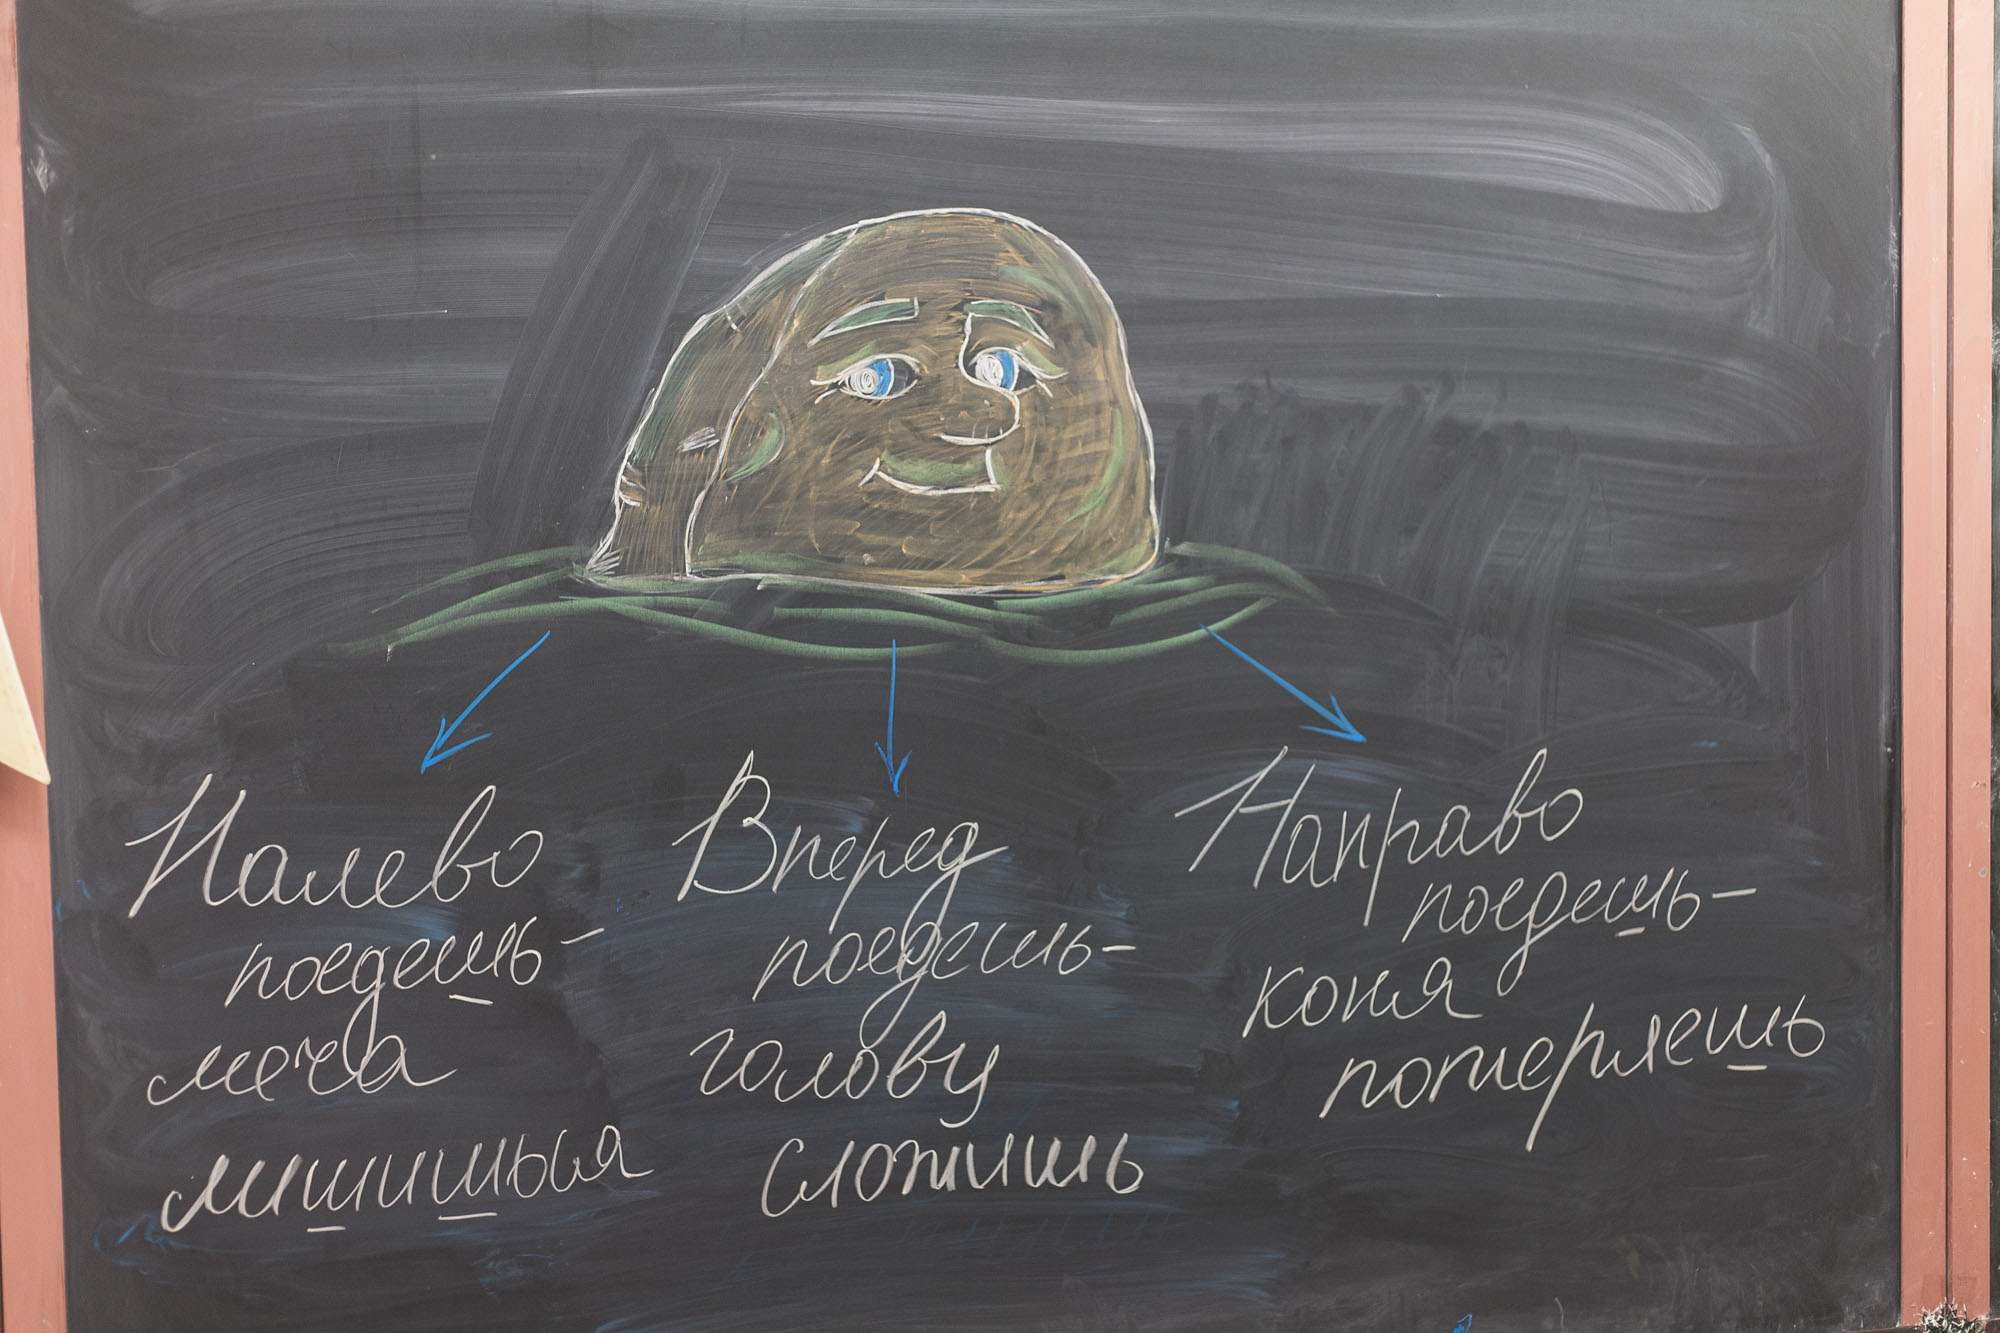 Налево
поедешь-
меча
лишишься
Вперед
поедешь-
голову
сложишь
Направо
поедешь-
коня
потеряешь